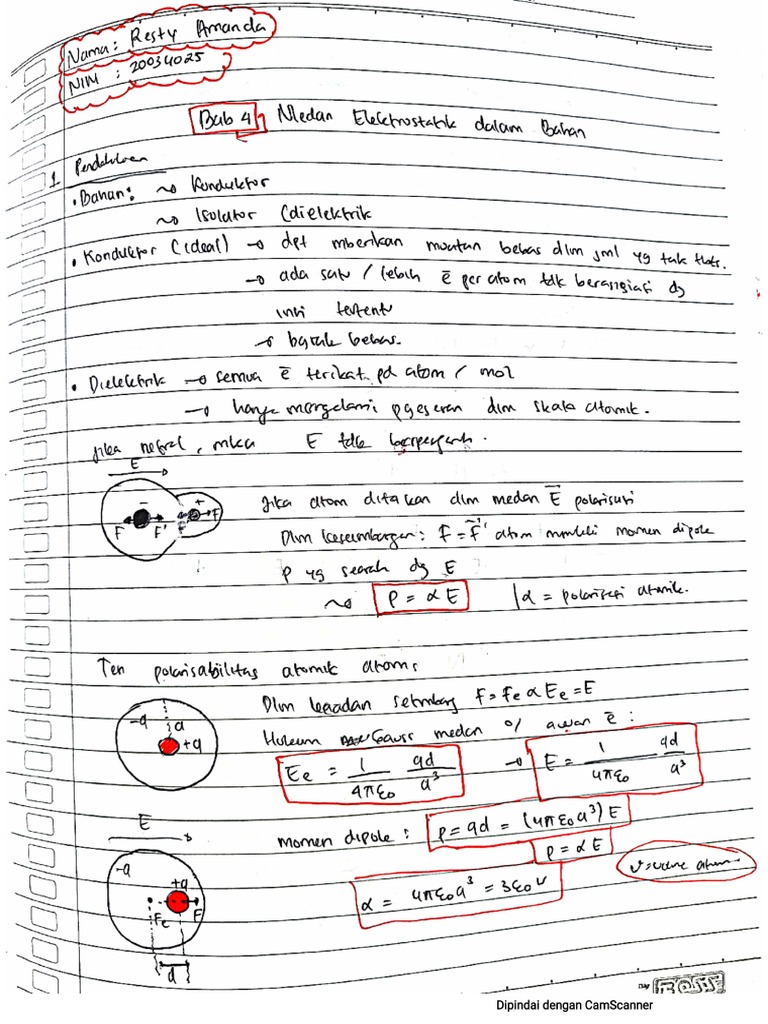 Nama: Resty Amanda
NIM : 20034025
Bab 4 Medan Elektrostatik dalam Bahan
1 Pendahuluan
• Bahan: ~> Konduktor
~> Isolator (dielektrik
• Konduktor (ideal) → dpt mberikan muatan bebas dlm jml yg tak tbts.
→ ada satu / lebih ē per atom tdk berasosiasi dg
inti tertentu
→ bgrak bebas.
• Dielektrik → semua ē terikat pd atom / mol
→ hanya mengalami pgeseran dlm skala atomik.
Jika netral, mka E tdk berpengaruh.
E
- +
F F' F
Jika atom ditakan dlm medan E polarisasi
Dlm keseimbangan: F = F' atom memiliki momen dipole
P yg searah dg E
~> P = α E | α = polarisasi atomik.
Ten polarisabilitas atomik atom:
-q d +q
Dlm keadaan setimbang F = Fe α Ee = E
Hukum Gauss medan o/ awan ē :
Ee = 1/4πε₀ qd/a³ → E = 1/4πε₀ qd/a³
E
momen dipole : p = qd = (4πε₀a³) E
p = α E
-q +q
Fe F
d
α = 4πε₀a³ = 3ε₀v
v = volume atom
By
Dipindai dengan CamScanner